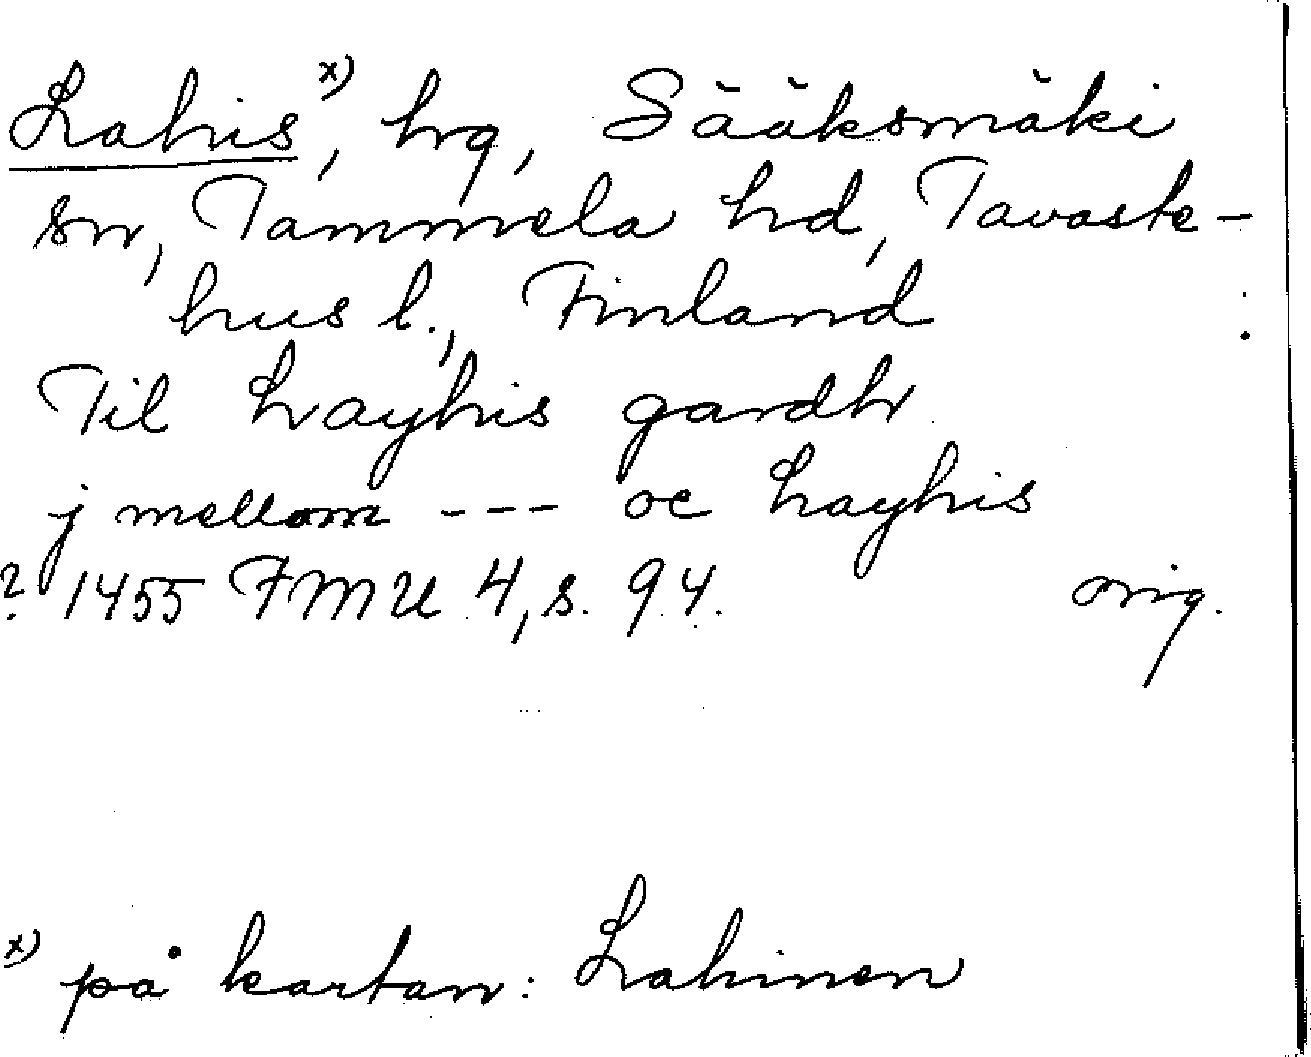 Lahis x), hrg, Sääksmäki
sn, Tammela hd, Tavaste-
hus l., Finland
Til Layhis gardh
j mellom --- oc Layhis
? 1455 FMU 4, s. 94. orig.
x) på kartan: Lahinen